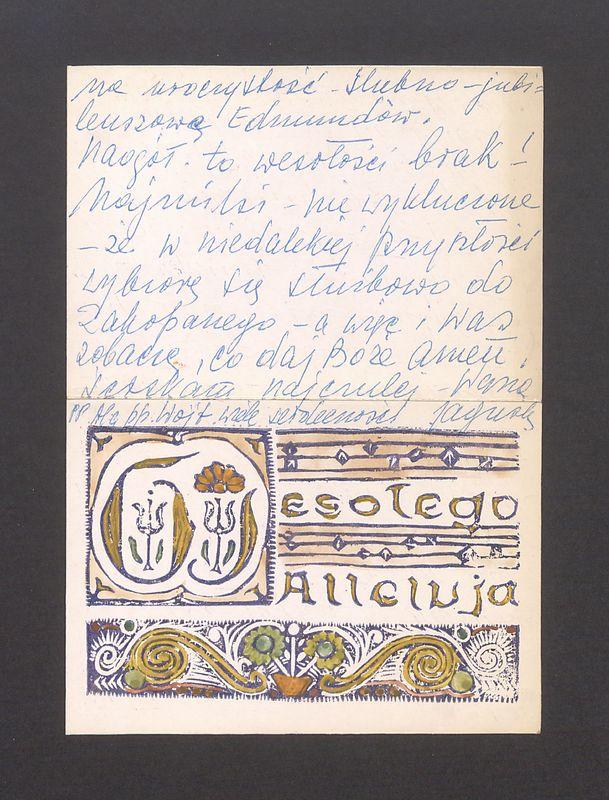 na uroczystość - ślubno-jubi=
leuszową Edmundów.
Naogół - to wesołości brak!
Najmilsi - nie wykluczone
- że w niedalekiej przyszłości
wybiorę się służbowo do
Zakopanego - a więc i Was
zobaczę, co daj Boże amen.
Ściskam najczulej - Wasza
pp. Wojt. wiele serdeczności Jagusia
Wesołego
Alleluja